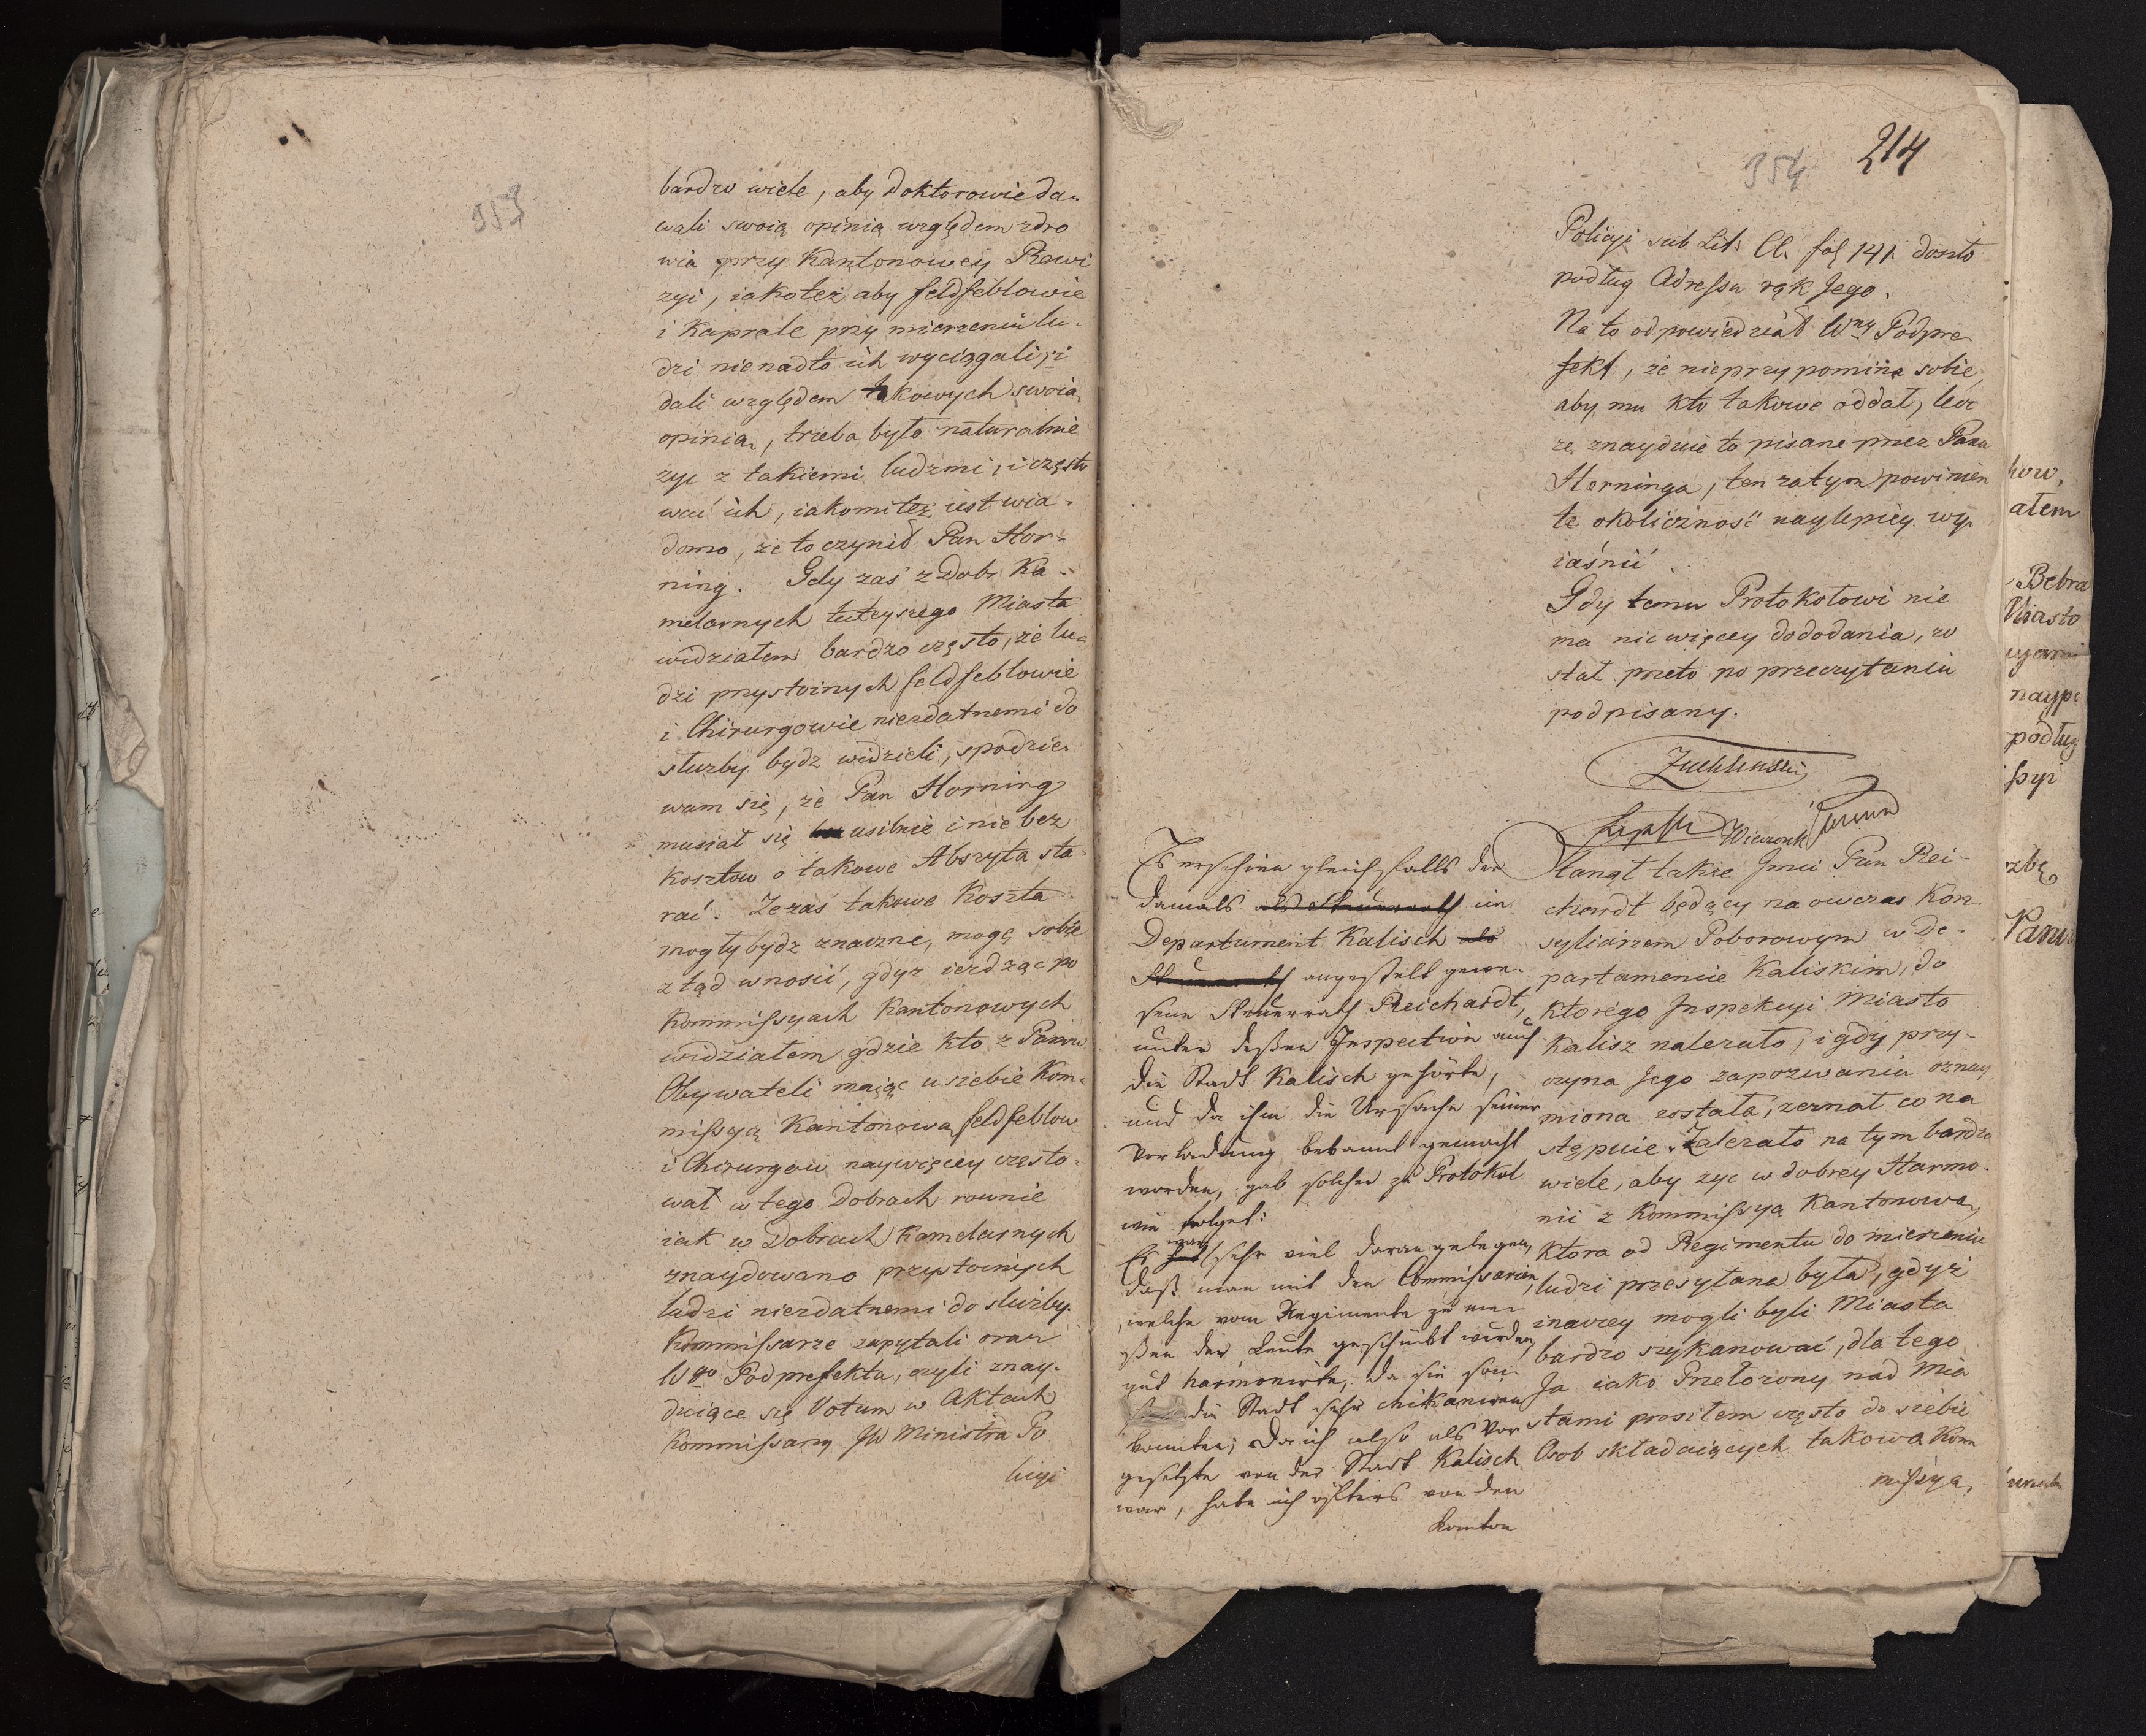 353
bardzo wiele, aby doktorowie da-
wali swoią opinią względem zdro
wia przy Kantonowey Rewi
zyi, iakoteż aby feldfeblowie
i Kaprale przy mierzeniu lu-
dzi nienadto ich wyciągali, i
dali względem takowych swoią
opinią, trzeba było naturalnie
żyć z takiemi ludzmi, i często
wać ich, iakomi też iest wia-
domo, że to czynił Pan Hor-
ning. Gdy zaś z Dobr Ka-
melarnych tuteyszego Miasta
widziałem bardzo często, że lu-
dzi przystoinych feldfeblowie
i Chirurgowie niezdatnemi do
służby bydz widzieli, spodzie-
wam się, że Pan Horning
musiał się usilnie i nie bez
kosztow o takowe Abszyta sta-
rać. Że zaś takowe Koszta
mogły bydz znaczne, mogę sobie
ztąd wnosić, gdyż ieżdżąc po
Kommissyach Kantonowych
widziałem gdzie kto z Panow
Obywateli maiąc u siebie Kom-
missyą Kantonową feldfeblow
i Chirurgow naywięcey często-
wał w tego Dobrach rownie
iak w Dobrach Kamelarnych
znaydowano przystoinych
ludzi niezdatnemi do służby.
Kommissarze zapytali oraz
Wgo Podprefekta, czyli znay-
duiące się Votum w Aktach
Kommissarzy JW Ministra Po
licyi
354 214
Policyi sub Lit. Cl. fol 141. doszło
podług Adressu rąk Jego.
Na to odpowiedział Wny Podpre-
fekt, że nieprzypomina sobie,
aby mu kto takowe oddał, lecz
że znayduie to pisane przez Pana
Horninga, ten zatym powinien
te okoliczność naylepiey wy-
iaśnić.
Gdy temu Protokołowi nie
ma nic więcey do dodania, zo
stał przeto po przeczytaniu
podpisany.
Wieczorek
Es erschien gleichfalls der
damals als Steuerrath im
Departement Kalisch als
Steuerrath angestelt gewe-
sene Steuerrath Reichardt,
unter deßen Inspection auch
die Stadt Kalisch gehörte,
und da ihm die Ursache seiner
Vorladung bekannt gemacht
worden, gab solcher zu Protokol
wie folget:
Es war sehr viel daran gelegen,
daß man mit den Commissarien,
welche vom Regimente zu me-
ßen der Leute geschickt wurden,
gut harmonirte, da sie sonst
die Stadt sehr chikaniren
konnten; da ich also als Vor
gesetzte von der Stadt Kalisch
war, habe ich öfters von den
Kanton
Stanął także Jmci Pan Rei-
chardt będący na owczas Kon-
syliarzem Poborowym w De-
partamencie Kaliskim, do
ktorego Inspekcyi Miasto
Kalisz należało, i gdy przy-
czyna Jego zapozwania oznay
miona została, zeznał co na
stępuie. Zależało na tym bardzo
wiele, aby żyć w dobrey Harmo-
nii z Kommissyą Kantonową,
ktora od Regimentu do mierzenia
ludzi przesyłana była, gdyż
inaczey mogli byli Miasta
bardzo szykanować, dla tego
Ja iako Przełożony nad Mia
stami prosiłem często do siebie
Osob składaiących takową Kom
missyą,
atem
Bebra
Miasto
naypi
podług